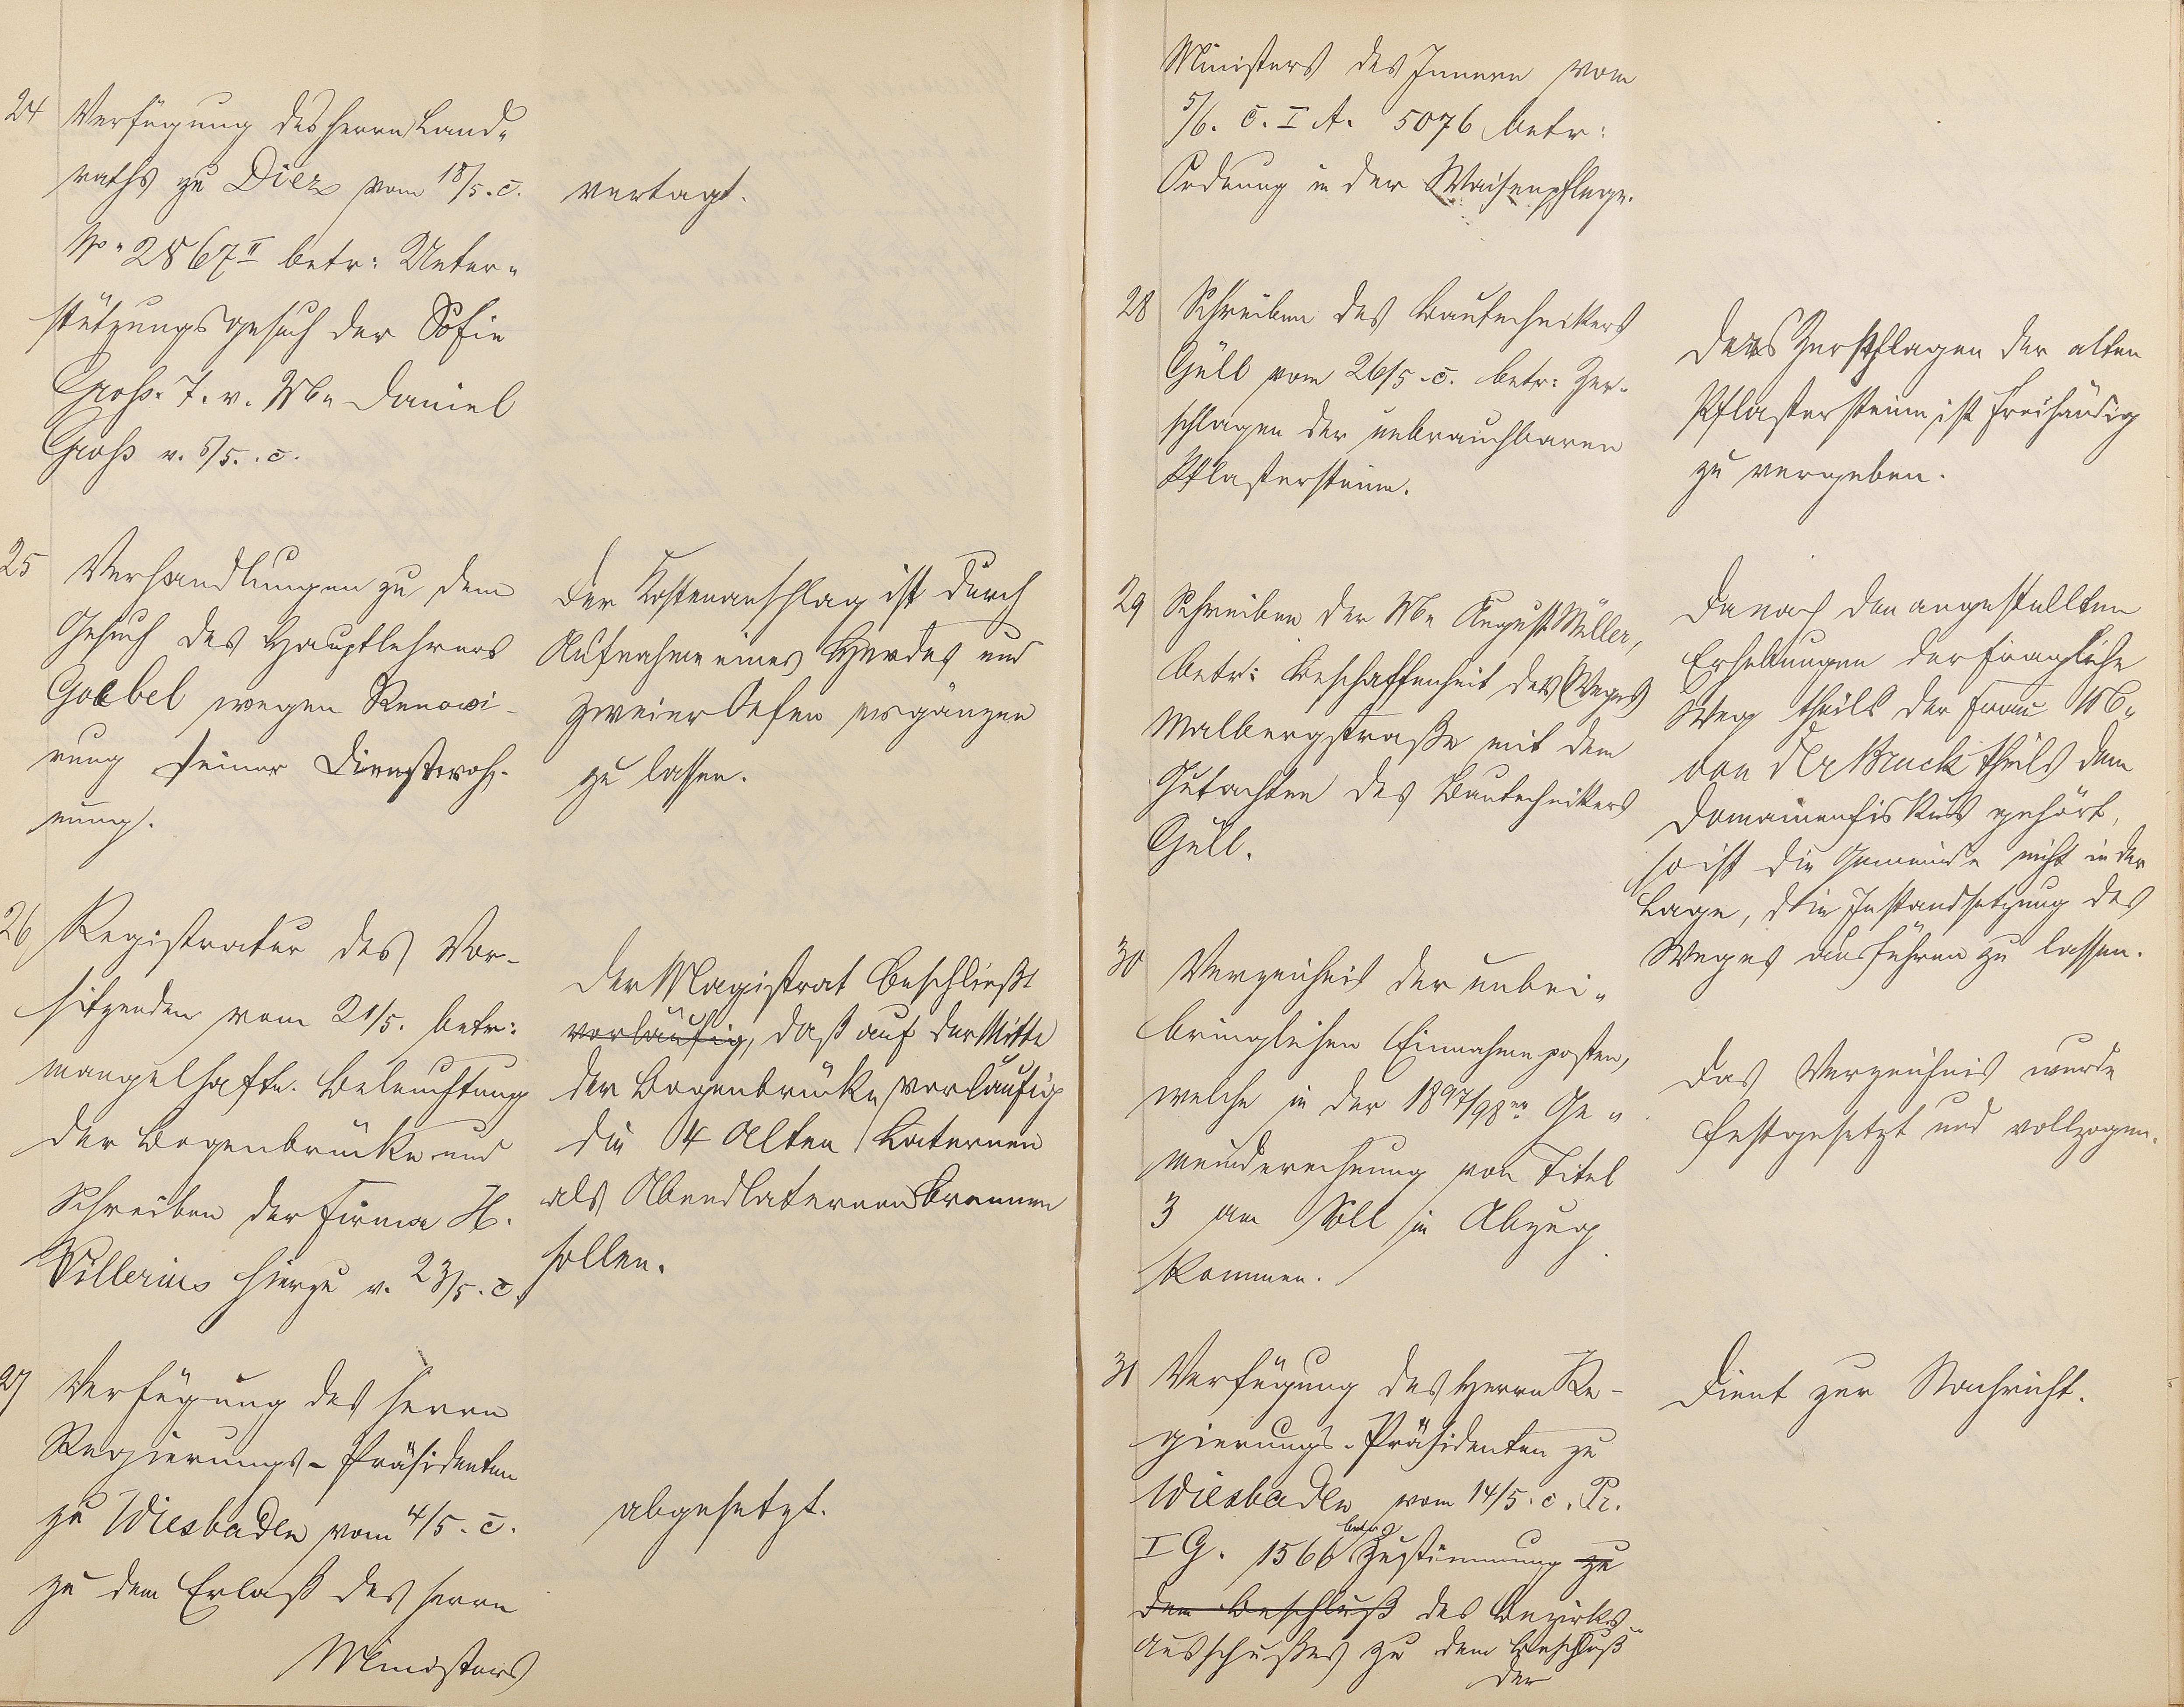 24 Verfügung des Herrn Land-
raths zu Diez vom 18/5. c.
No. 2867 II betr: Unter-
stützungsgesuch der Sofie
Groß. T. v. Ww Daniel
Groß v. 5/5. c.
vertagt.
25 Verhandlungen zu dem
Gesuch des Hauptlehrers
Goebel wegen Renovi-
rung seiner Dienstwoh-
nung.
Der Kostenanschlag ist durch
Aufnahme eines Herdes und
zweier Oefen ergänzen
zu lassen.
26 Registratur des Vor-
sitzenden vom 21/5. betr:
mangelhafte Beleuchtung
der Bogenbrücke und
Schreiben der Firma H.
hierzu v. 23/5. c.
Der Magistrat beschließt
vorläufig, daß auf der Mitte
der Bogenbrücke vorläufig
die 4 alten Laternen
als Abendlaternen brennen
sollen.
27 Verfügung des Herrn
Regierungs-Präsidenten
zu Wiesbaden vom 4/5. c.
zu dem Erlaß des Herrn
Ministers
abgesetzt.
Ministers des Innern vom
5/6. c. I A. 5076 betr:
Ordnung in der Waisenpflege.
28 Schreiben des Bautechnikers
Güll vom 26/5. c. betr: Zer-
schlagen der unbrauchbaren
Pflastersteine.
Das Zerschlagen der alten
Pflastersteine ist freihändig
zu vergeben.
29 Schreiben der Ww August Müller,
betr: Beschaffenheit des Weges
Malbergstraße mit dem
Gutachten des Bautechnikers
Güll.
Da nach den angestellten
Erhebungen der fragliche
Weg theils der Frau Ww.
von der Bruck theils dem
Domainenfiskus gehört,
so ist die Gemeinde nicht in der
Lage, die Instandsetzung des
Weges ausführen zu lassen.
30 Verzeichniß der unbei-
bringlichen Einnahmeposten,
welche in der 1897/98er Ge-
meinderechnung von Titel
3 am Soll in Abzug
kommen.
Das Verzeichnis wurde
festgesetzt und vollzogen.
31 Verfügung des Herrn Re-
gierungs-Präsidenten zu
Wiesbaden vom 14/5. c. Pr.
I G. 1566 betr. Zustimmung zu
dem Beschluß des Bezirks-
Ausschußes zu dem Beschluß
der
Dient zur Nachricht.